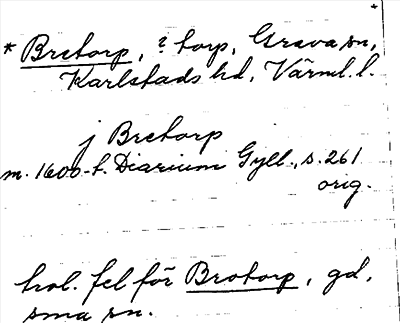 * Bretorp, ? torp, Grava sn,
Karlstads hd, Värml. l.
j Bretorp
m. 1600-t. Diarium Gyll., s. 261
orig.
trol. fel för Brotorp, gd,
sma sn.